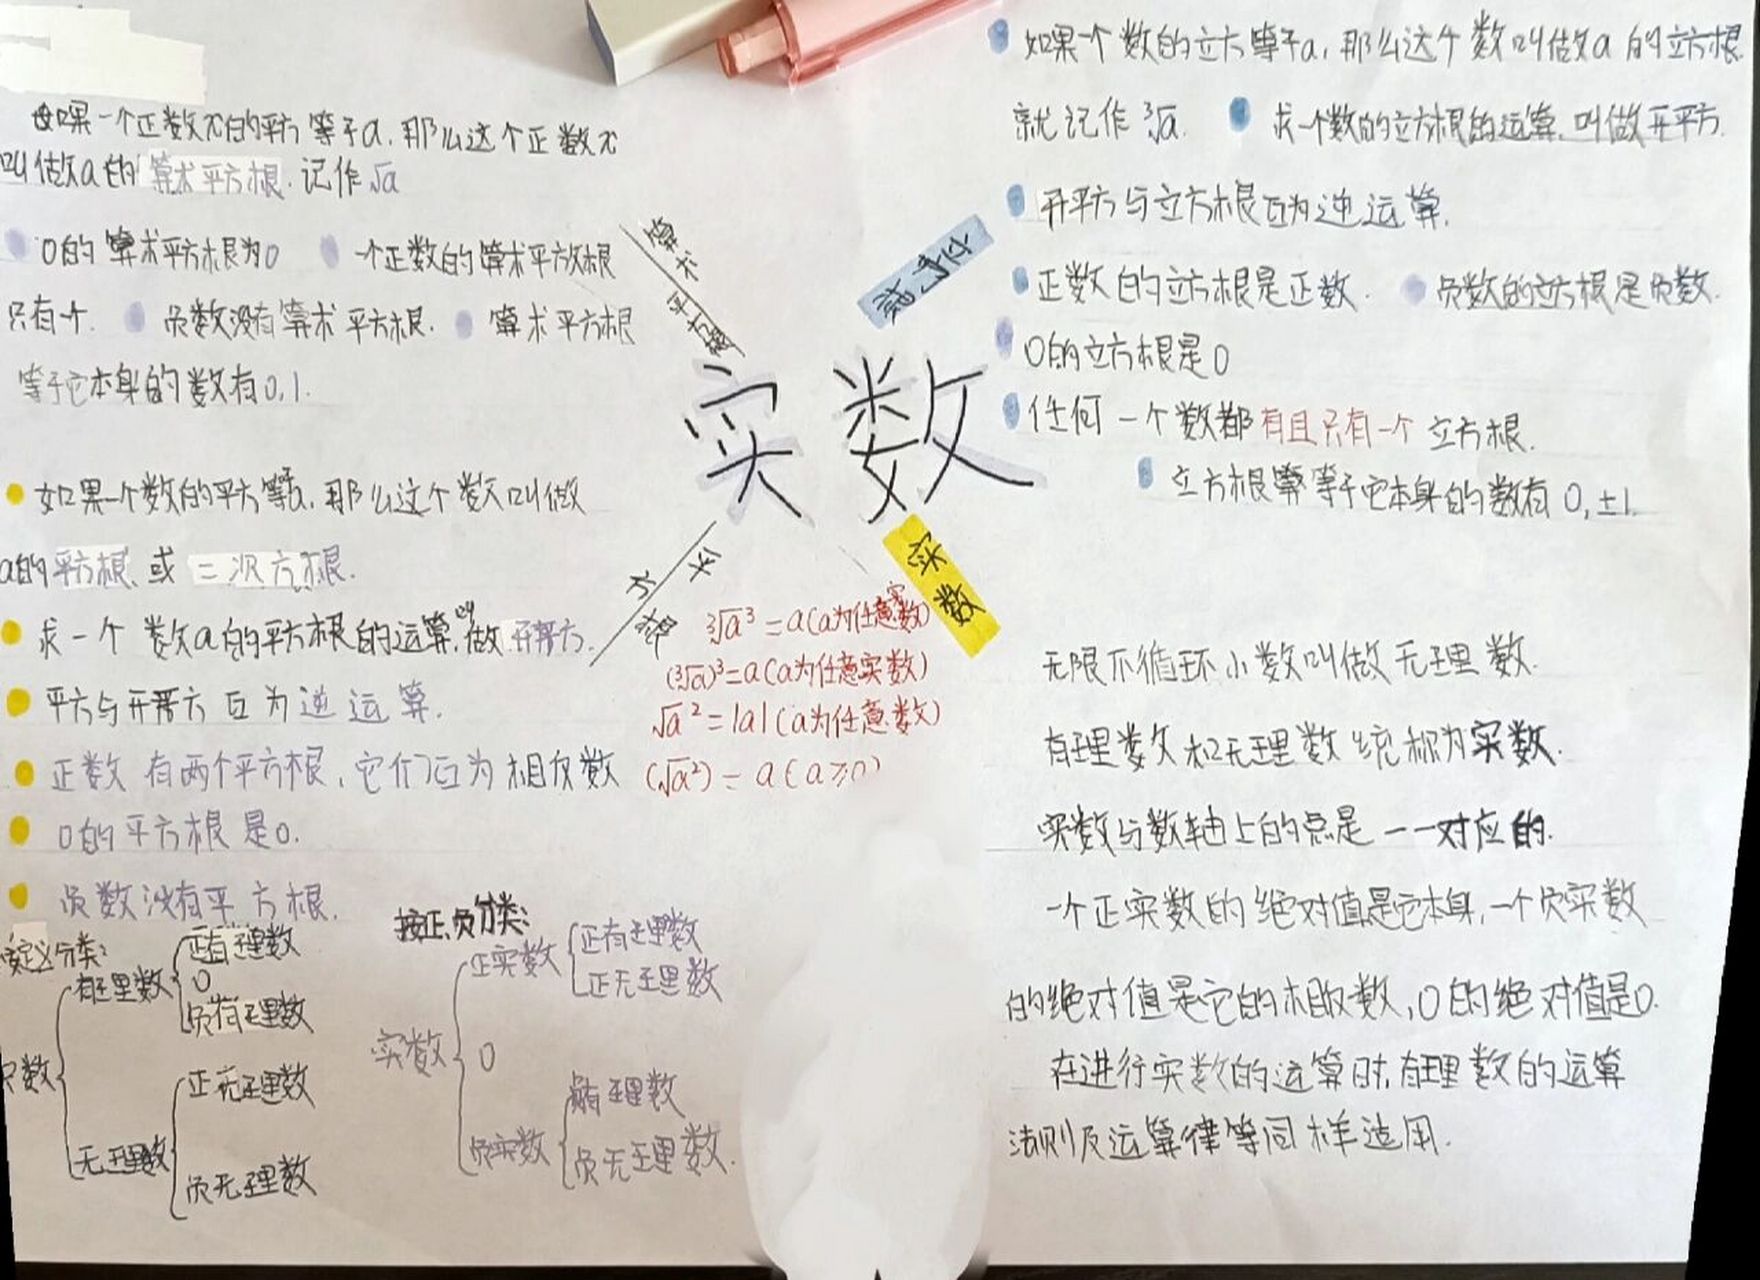 如果一个正数x的平方等于a,那么这个正数x
叫做a的算术平方根.记作√a
0的算术平方根为0
一个正数的算术平方根
只有一个.
负数没有算术平方根.
算术平方根
等于它本身的数有0,1.
算术
平方根
立方根
实数
平方根
实数
如果一个数的平方等于a,那么这个数叫做
a的平方根、或二次方根.
求一个数a的平方根的运算,叫做开平方.
平方与开平方互为逆运算.
正数有两个平方根,它们互为相反数
0的平方根是0.
负数没有平方根.
³√a³=a(a为任意实数)
(³√a)³=a(a为任意实数)
√a²=|a|(a为任意数)
(√a²)=a(a≥0)
按定义分类:
实数
有理数
正有理数
0
负有理数
无理数
正无理数
负无理数
按正、负分类:
实数
正实数
正有理数
正无理数
0
负实数
负有理数
负无理数.
如果一个数的立方等于a,那么这个数叫做a的立方根.
就记作³√a.
求一个数的立方根的运算,叫做开平方.
开平方与立方根互为逆运算.
正数的立方根是正数.
负数的立方根是负数.
0的立方根是0
任何一个数都有且只有一个立方根.
立方根等于它本身的数有0,±1.
无限不循环小数叫做无理数.
有理数和无理数统称为实数.
实数与数轴上的点是一一对应的.
一个正实数的绝对值是它本身,一个负实数
的绝对值是它的相反数,0的绝对值是0.
在进行实数的运算时,有理数的运算
法则及运算律等同样适用.